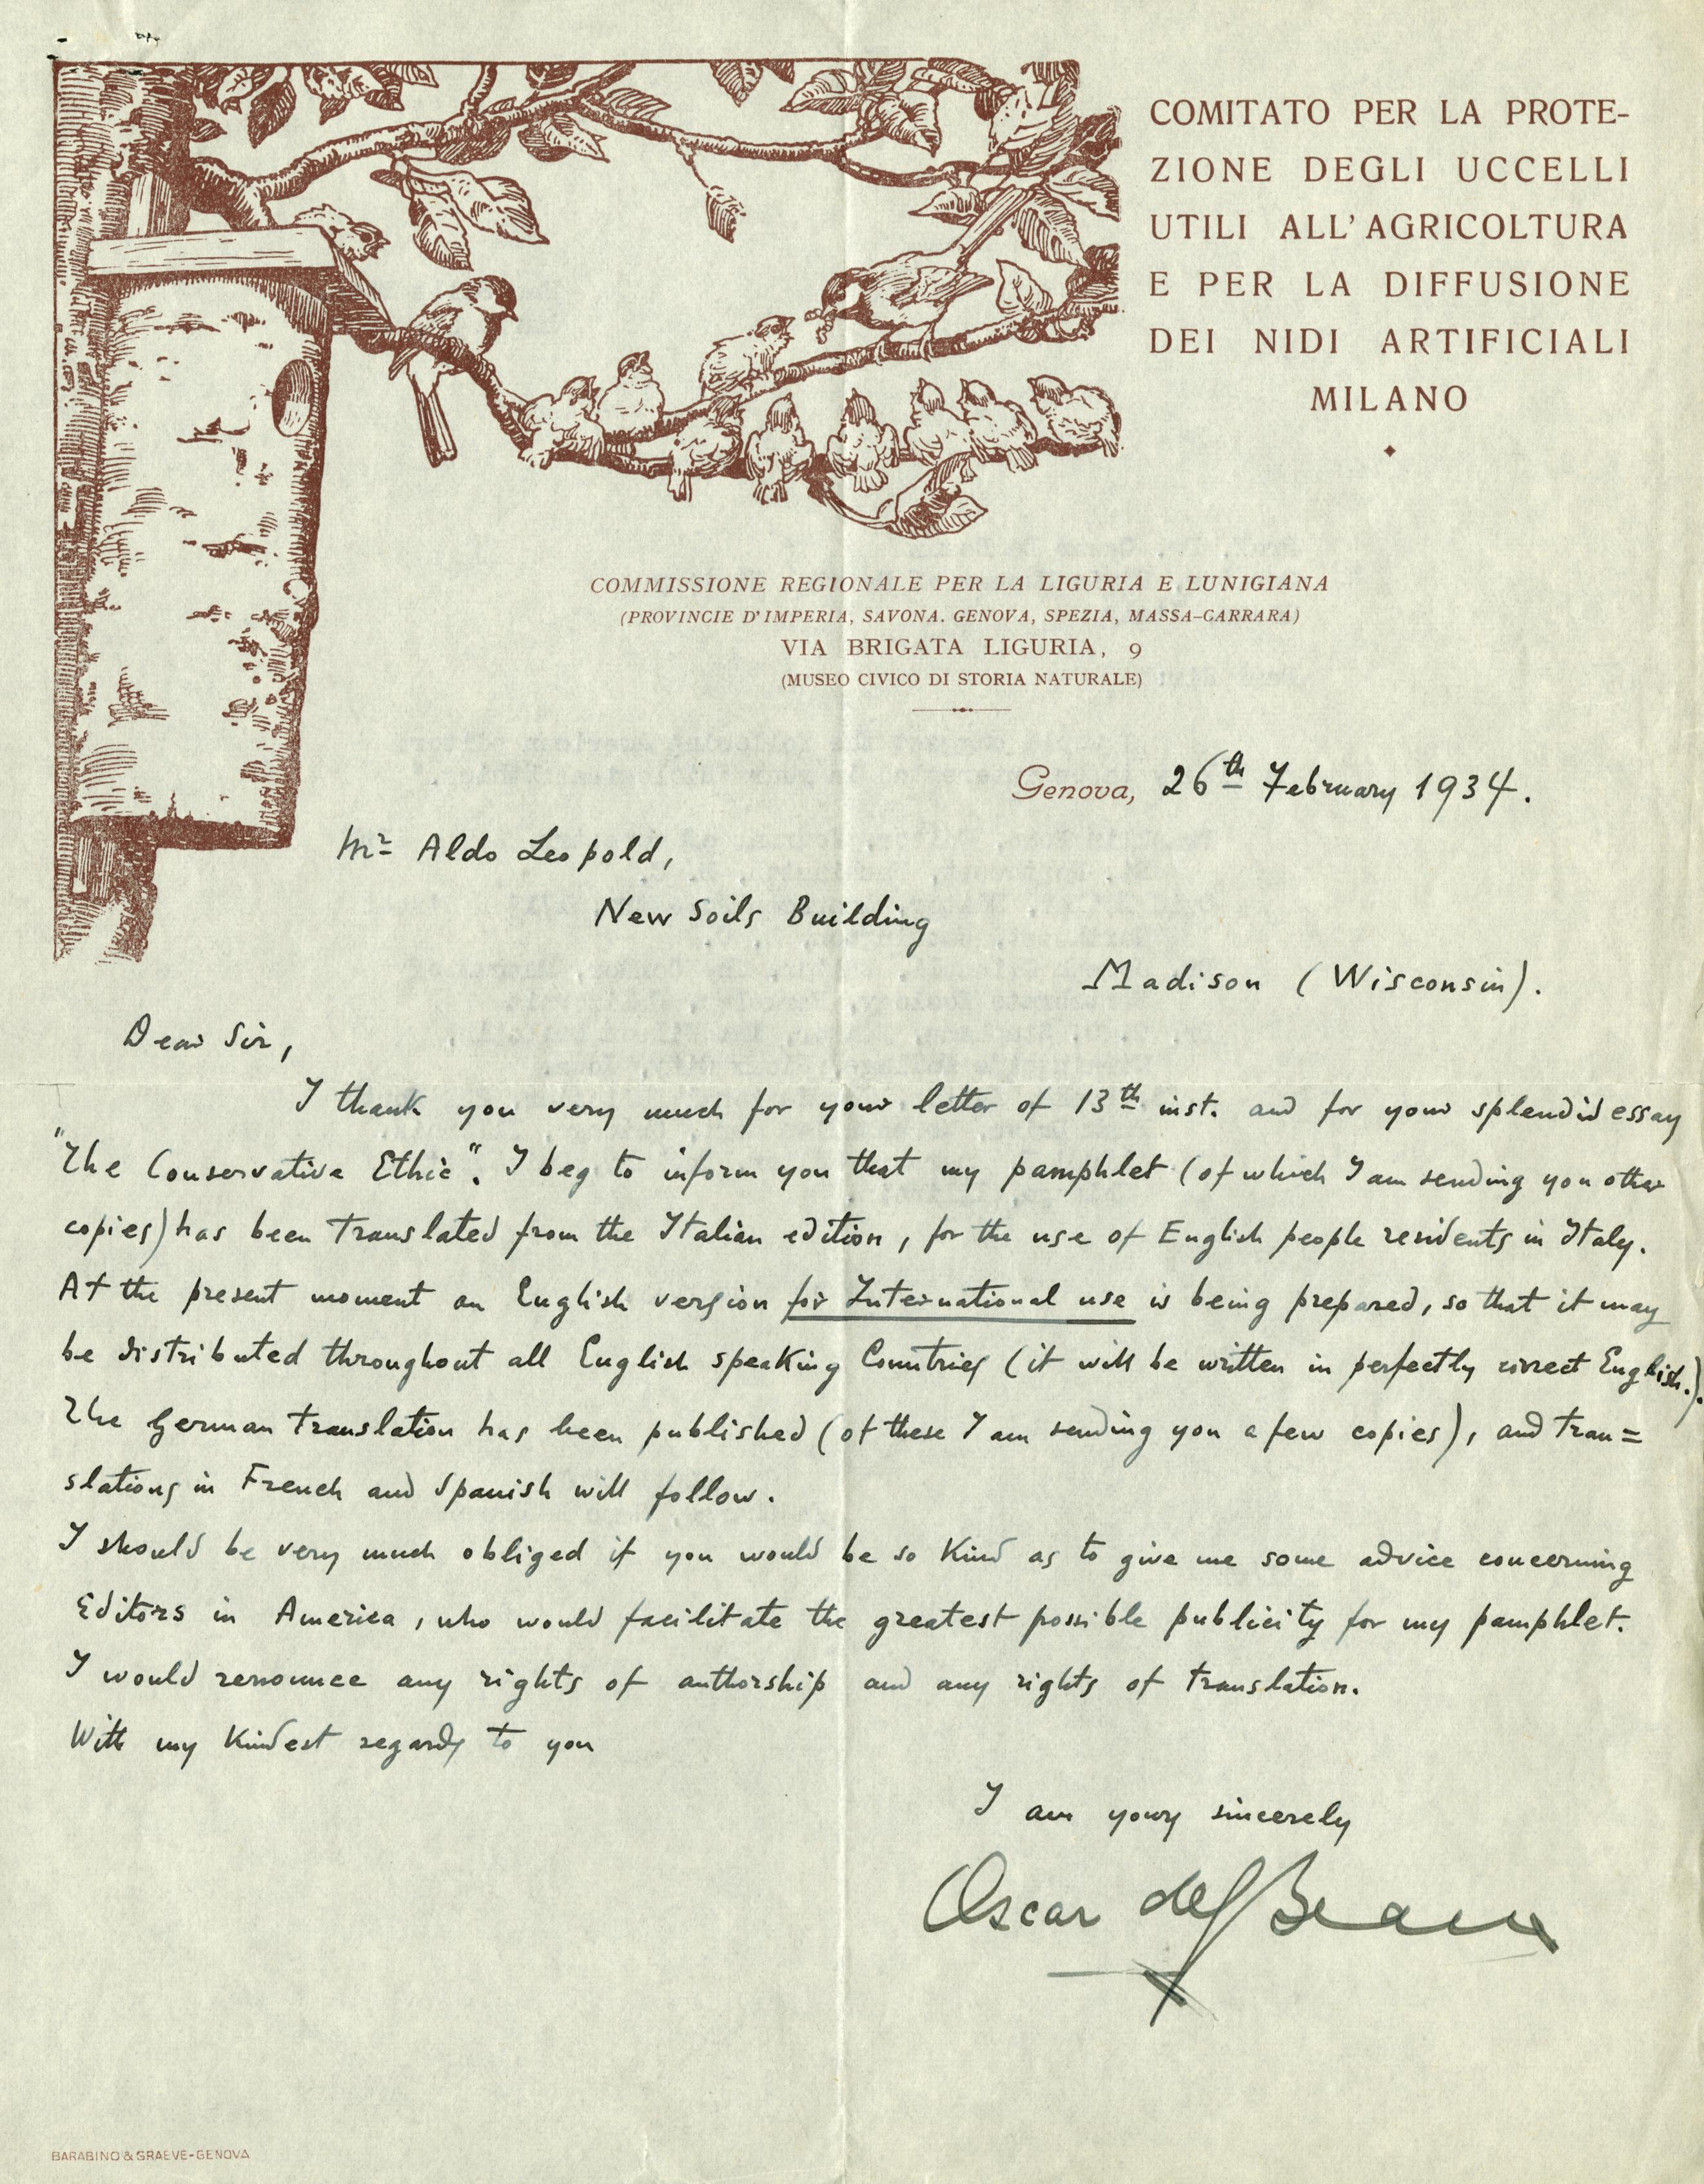 COMITATO PER LA PROTE-
ZIONE DEGLI UCCELLI
UTILI ALL'AGRICOLTURA
E PER LA DIFFUSIONE
DEI NIDI ARTIFICIALI
MILANO
COMMISSIONE REGIONALE PER LA LIGURIA E LUNIGIANA
(PROVINCIE D'IMPERIA, SAVONA. GENOVA, SPEZIA, MASSA-CARRARA)
VIA BRIGATA LIGURIA, 9
(MUSEO CIVICO DI STORIA NATURALE)
Genova, 26th February 1934.
Mr Aldo Leopold,
New Soils Building
Madison (Wisconsin).
Dear Sir,
I thank you very much for your letter of 13th inst. and for your splendid essay
"The Conservative Ethic". I beg to inform you that my pamphlet (of which I am sending you other
copies) has been translated from the Italian edition, for the use of English people residents in Italy.
At the present moment an English version for International use is being prepared, so that it may
be distributed throughout all English speaking Countries (it will be written in perfectly correct English.).
The German translation has been published (of these I am sending you a few copies), and tran=
slations in French and Spanish will follow.
I should be very much obliged if you would be so kind as to give me some advice concerning
Editors in America, who would facilitate the greatest possible publicity for my pamphlet.
I would renounce any rights of authorship and any rights of translation.
With my kindest regards to you
I am yours sincerely
Oscar de Beaux
BARABINO & GRAEVE-GENOVA